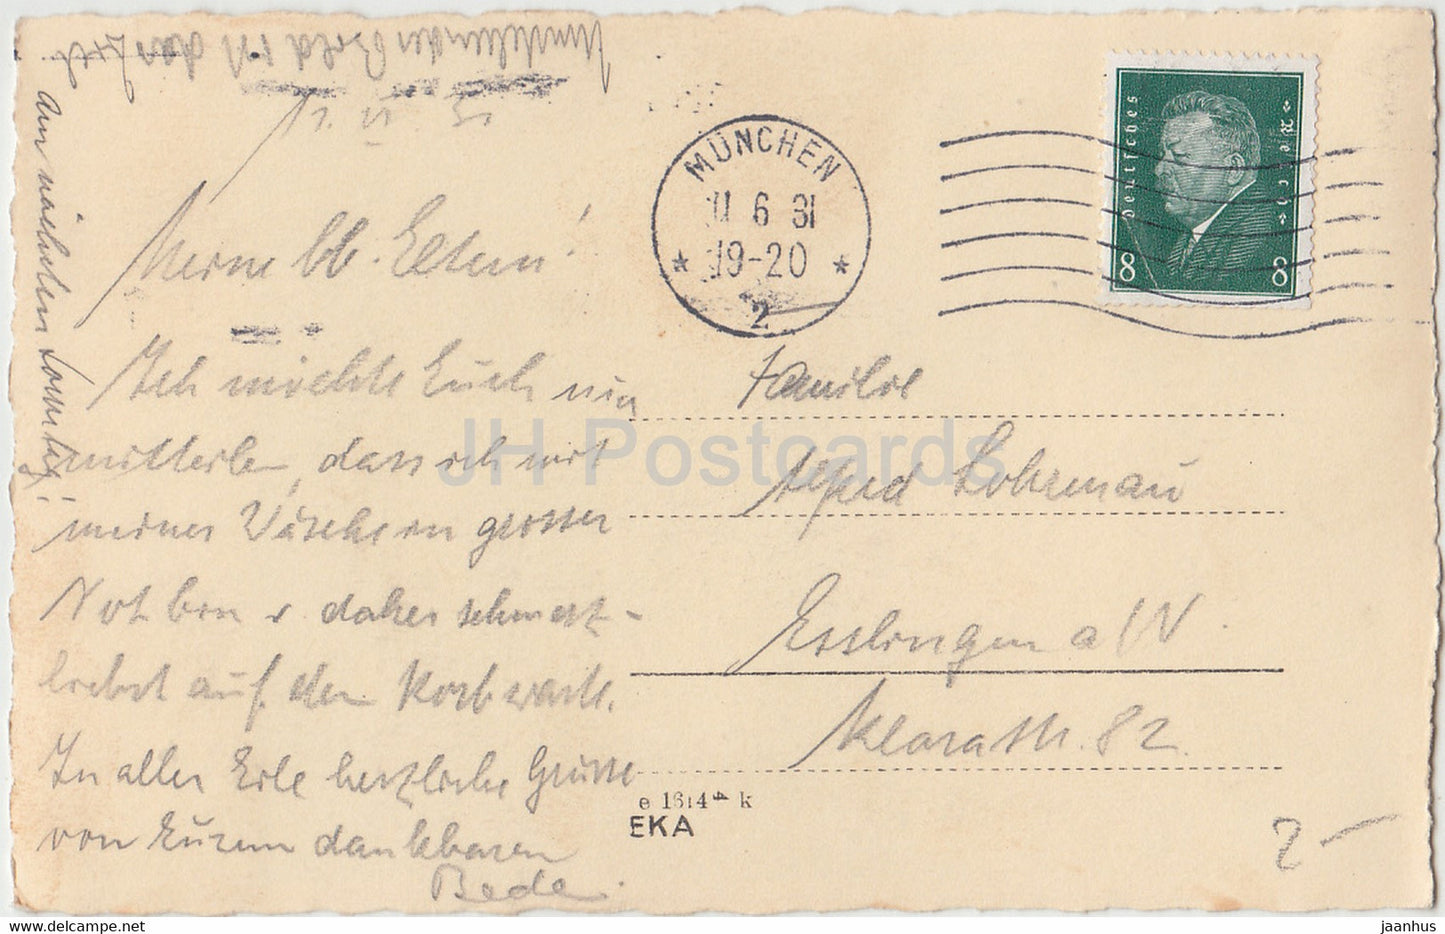 11. VI. 31
Meine lb. Eltern!
Ich möchte Euch nun
mitteilen, dass ich mit
meiner Wäsche in grosser
Not bin u. daher schmerz-
lichst auf den Korb warte.
In aller Eile herzliche Grüsse
von Eurem dankbaren
Bede.
am nächsten Sonntag!
in der
MÜNCHEN
11 6 31
19-20
2
Deutsches Reich
8 8
Familie
Alfred Lohrmann
Esslingen a/N.
Klarastr. 82
e 1614 k
EKA
2-
JH Postcards
jaanhus